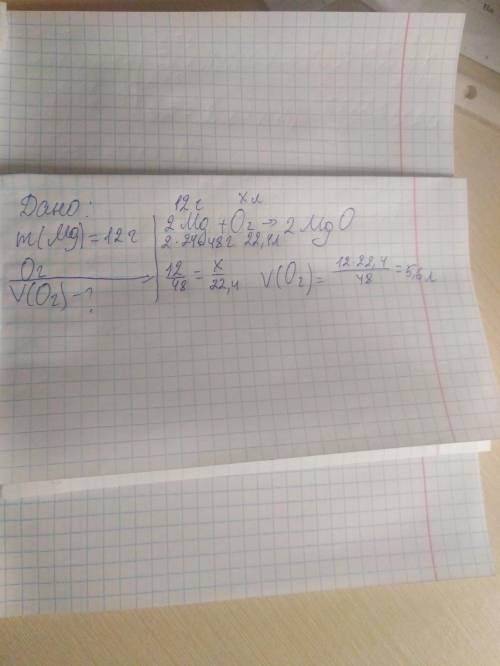 Дано:
m(Mg)=12г
O₂
V(O₂)-?
12г хл
2Mg+O₂→2MgO
2·24=48г 22,4л
12/48=х/22,4 V(O₂)=12·22,4/48=5,6л